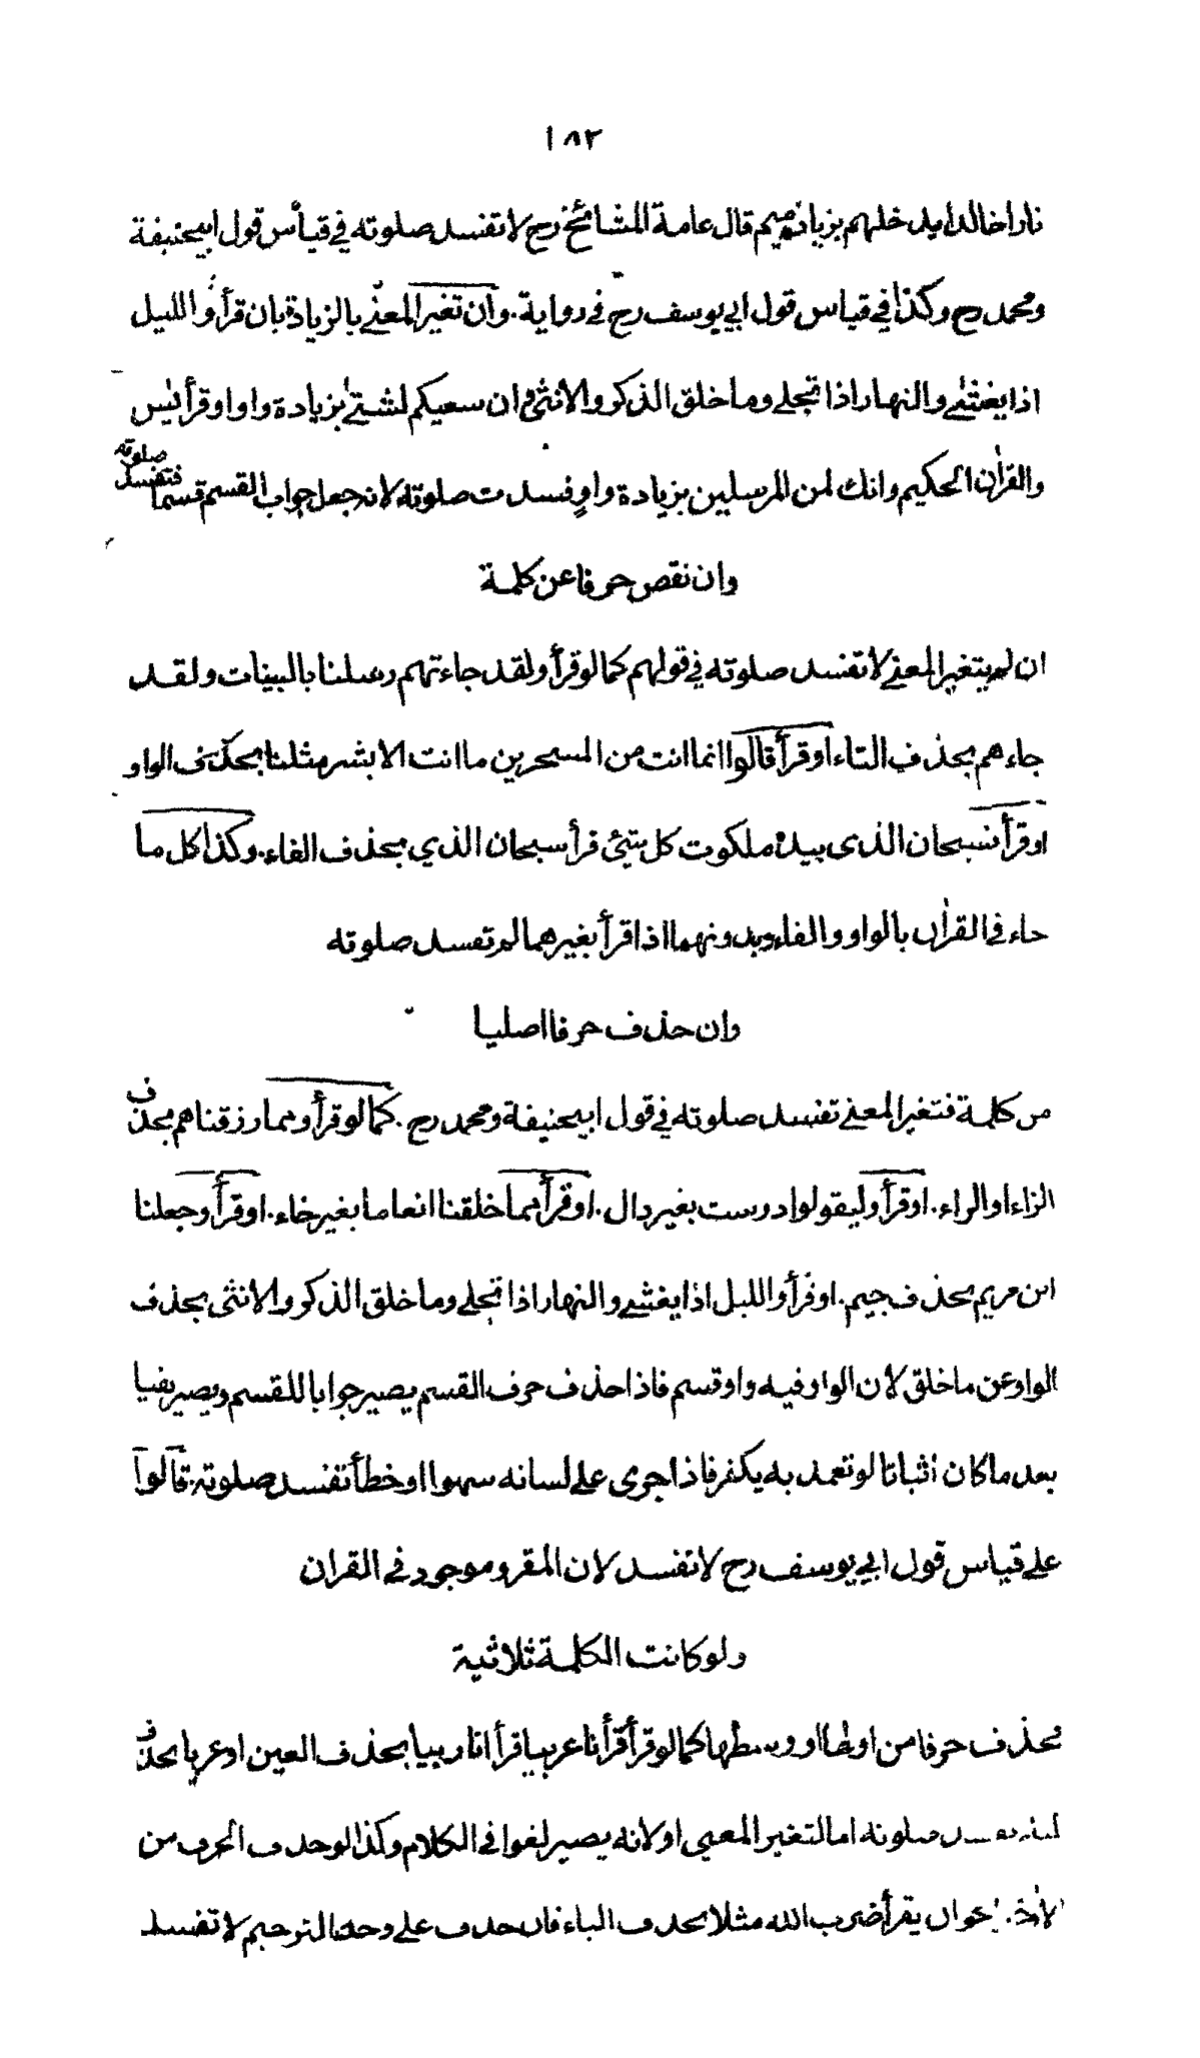 ١٨٢
نارا خالدا يدخلهم بزيادة ميم قال عامة المشائخ رح لا تفسد صلوته في قياس قول ابيحنيفة
ومحمد رح وكذا في قياس قول ابي يوسف رح في رواية. وان تغير المعنى بالزيادة بان قرأ والليل
اذا يغشى والنهار اذا تجلى وما خلق الذكر والانثى وان سعيكم لشتى بزيادة واو او قرأ يٰس
والقرآن الحكيم وانك لمن المرسلين بزيادة واو فسدت صلوته لانه جعل جواب القسم قسما فتفسد صلوته
وان نقص حرفا عن كلمة
ان لم يتغير المعنى لا تفسد صلوته في قولهم كما لو قرأ ولقد جاءتهم رسلنا بالبينات ولقد
جاءهم بحذف التاء او قرأ قالوا انما انت من المسحرين ما انت الا بشر مثلنا بحذف الواو
او قرأ فسبحان الذى بيده ملكوت كل شئ قرأ سبحان الذي بحذف الفاء. وكذا كل ما
جاء في القرآن بالواو والفاء وبدونهما اذا قرأ بغيرهما لم تفسد صلوته
وان حذف حرفا اصليا
من كلمة فتغير المعنى تفسد صلوته في قول ابيحنيفة ومحمد رح. كما لو قرأ ومما رزقناهم بحذف
الزاء او الراء. او قرأ وليقولوا درست بغير دال. او قرأ مما خلقنا انعاما بغير خاء. او قرأ وجعلنا
ابن مريم بحذف جيم. او قرأ والليل اذا يغشى والنهار اذا تجلى وما خلق الذكر والانثى بحذف
الواو عن ما خلق لان الواو فيه واو قسم فاذا حذف حرف القسم يصير جوابا للقسم ويصير نفيا
بعد ما كان اثباتا لو تعمد به يكفر فاذا جرى على لسانه سهوا او خطأ تفسد صلوته. قالوا
على قياس قول ابي يوسف رح لا تفسد لان المقرو موجود في القران
ولو كانت الكلمة ثلاثية
فحذف حرفا من اولها او وسطها كما لو قرأ قرأنا عربيا قرأ انا ربيا بحذف العين او عربا بحذف
صلوته اما لتغير المعنى او لانه يصير لغوا في الكلام وكذا لو حذف الحرف من
ان يقرأ ضرب الله مثلا بحذف الباء فان حذف على وجه الترخيم لا تفسد